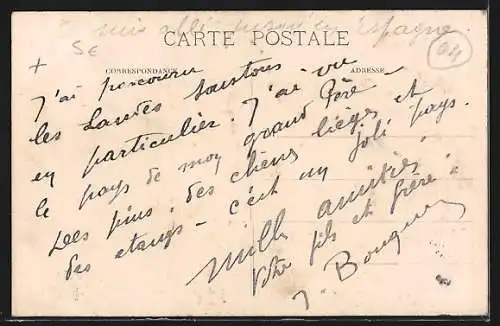 suis allé jusqu'en Espagne.
5€
CARTE POSTALE
04
+
CORRESPONDANCE
ADRESSE
J'ai parcouru
les Landes Soustons
en particulier. J'ai vu
le pays de mon grand Père
Les pins, des chênes lièges et
des étangs - c'est un joli pays.
Mille amitiés
Votre fils et frère
J. Bouquet